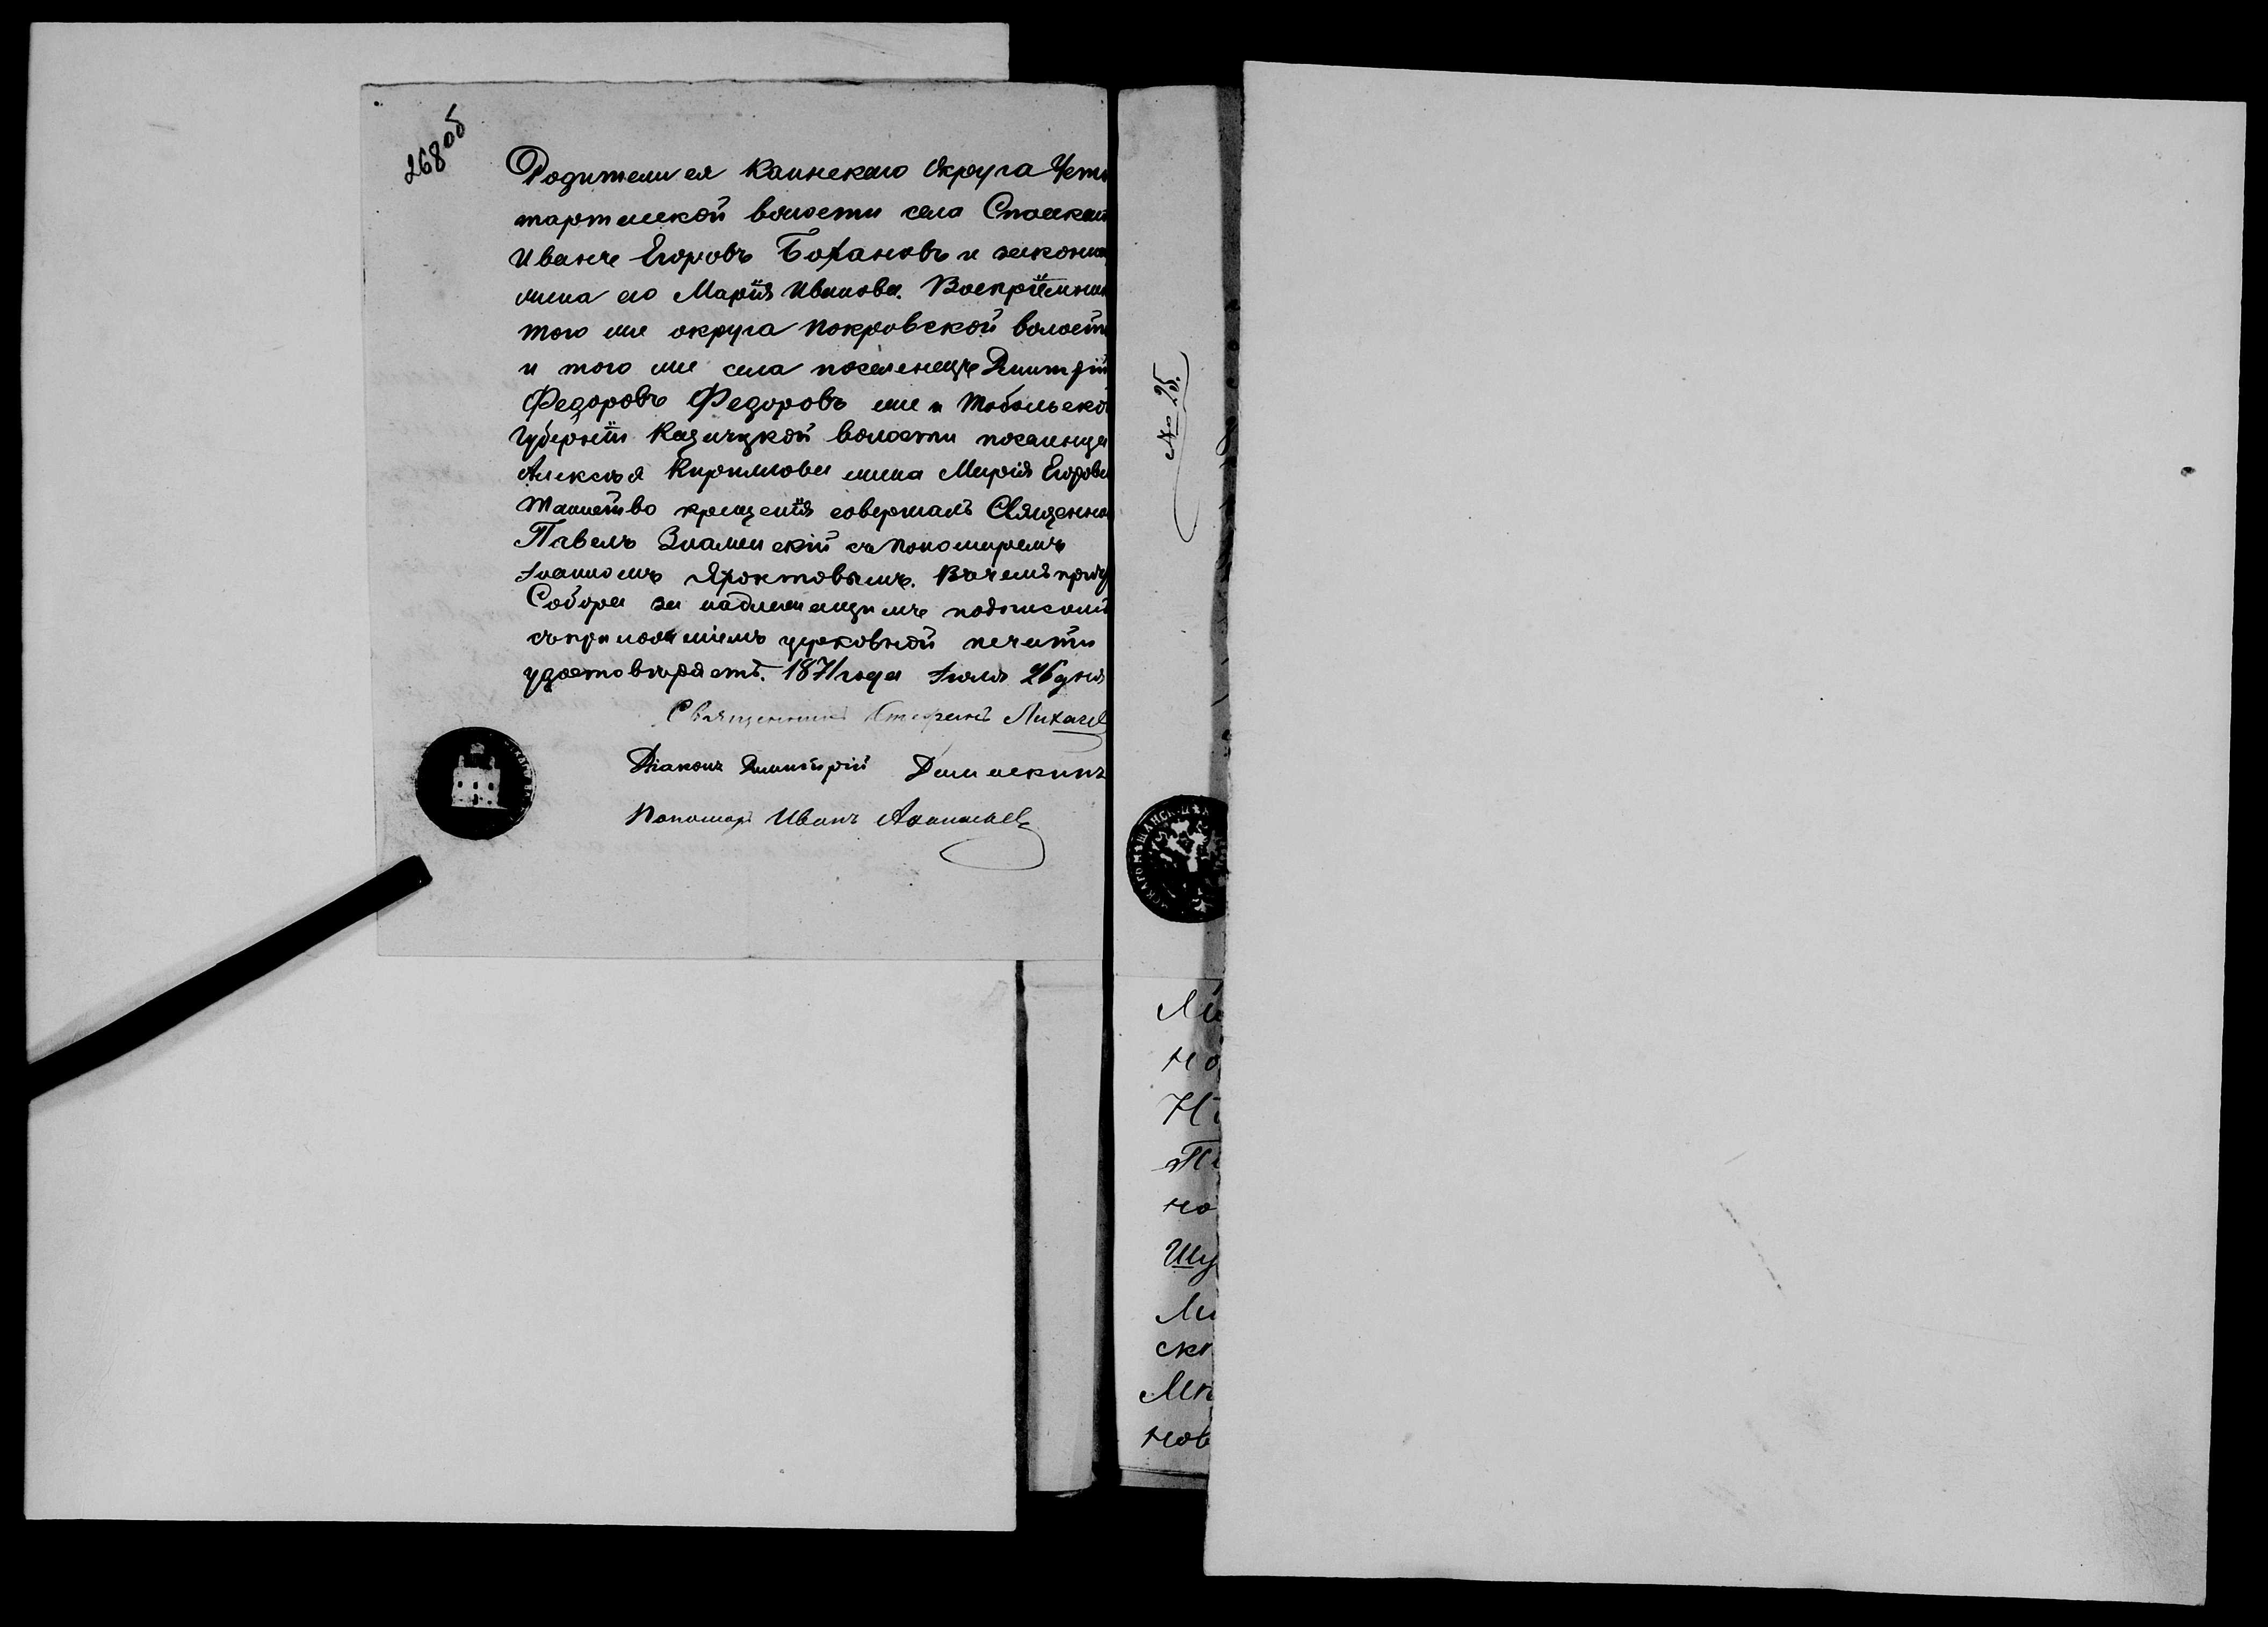 268об
Родители ея Каинскаго Округа Усть
тартасской волости села Спасска
Иване Егоровъ Бохановъ и законна
жена его Марія Иванова. Воспріемник
того же округа покровской волост
и того же села поселенецъ Димитрій
Федоровъ Федоровъ же и Тобольско
Губерніи волости поселенца
Алексѣя Кирилова жена Марія Егорова
Таинство крещенія совершалъ Священно
Павелъ Знаменскій съ пономаремъ
Іоанномъ Въ чемъ
Собора за надлежащимъ подписомъ
съ приложеніемъ церковной печати
удостовѣряетъ. 1871 года Іюля 26 дня
Священникъ Стефанъ Лихачев
Діаконъ Димитрій
Пономарь Иванъ
№ 25.
СКАГО МѢЩАНСКА
Ли
но
Но
Пе
но
Шу
Ми
ско
нов